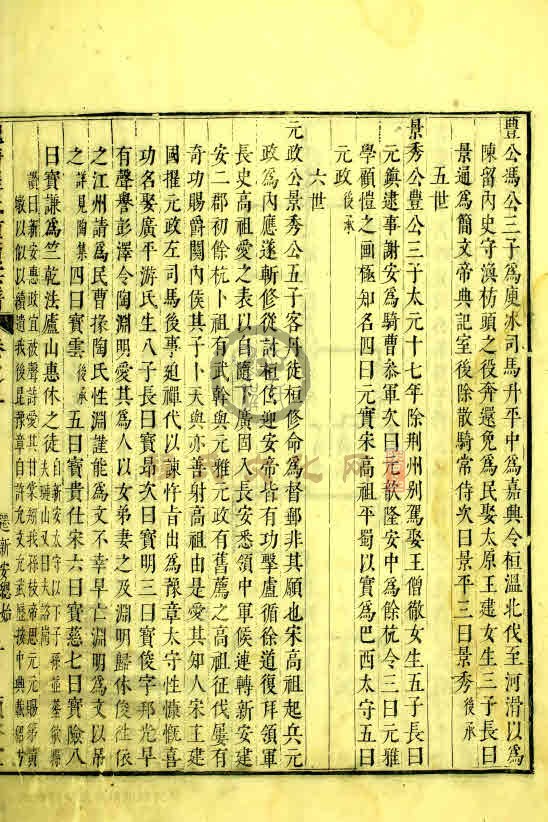 豐公馮公三子爲庾冰司馬升平中爲嘉興令桓溫北伐至河滑以爲
陳留內史守滇枋頭之役奔還免爲民娶太原王建女生三子長曰
景通爲簡文帝典記室後除散騎常侍次曰景平三曰景秀後承
五世
景秀公豐公三子太元十七年除荆州别駕娶王僧徹女生五子長曰
元鎮逮事謝安爲騎曹叅軍次曰元歆隆安中爲餘杭令三曰元雅
學顧愷之畫極知名四曰元實宋高祖平蜀以實爲巴西太守五曰
元政後承
六世
元政公景秀公五子客丹徒桓修命爲督郵非其願也宋高祖起兵元
政爲內應遂斬修從討桓伭迎安帝皆有功擊盧循徐道復拜領軍
長史高祖愛之表以自隨下廣固入長安悉領中軍候連轉新安建
安二郡初餘杭卜祖有武幹與元雅元政有舊薦之高祖征伐屢有
奇功賜爵關內侯其子卜天與亦善射高祖由是愛其知人宋王建
國擢元政左司馬後事廹禪代以諫忤旨出爲豫章太守性慷慨喜
功名娶廣平游氏生八子長曰寶昂次曰寶明三曰寶俊字邦光早
有聲譽彭澤令陶淵明愛其爲人以女弟妻之及淵明歸休俊往依
之江州請爲民曹掾陶氏性淵謹能爲文不幸早亡淵明爲文以弔
之詳見陶集四曰寶雲後承五曰寶貴仕宋六曰寶慈七曰寶險八
曰寶謙爲竺乾法廬山惠休之徒自新安太守以下子孫並葬歙縣
讚曰新安惠政宜被聲詩愛其甘棠矧我孫枝帝思元元賜茅賓